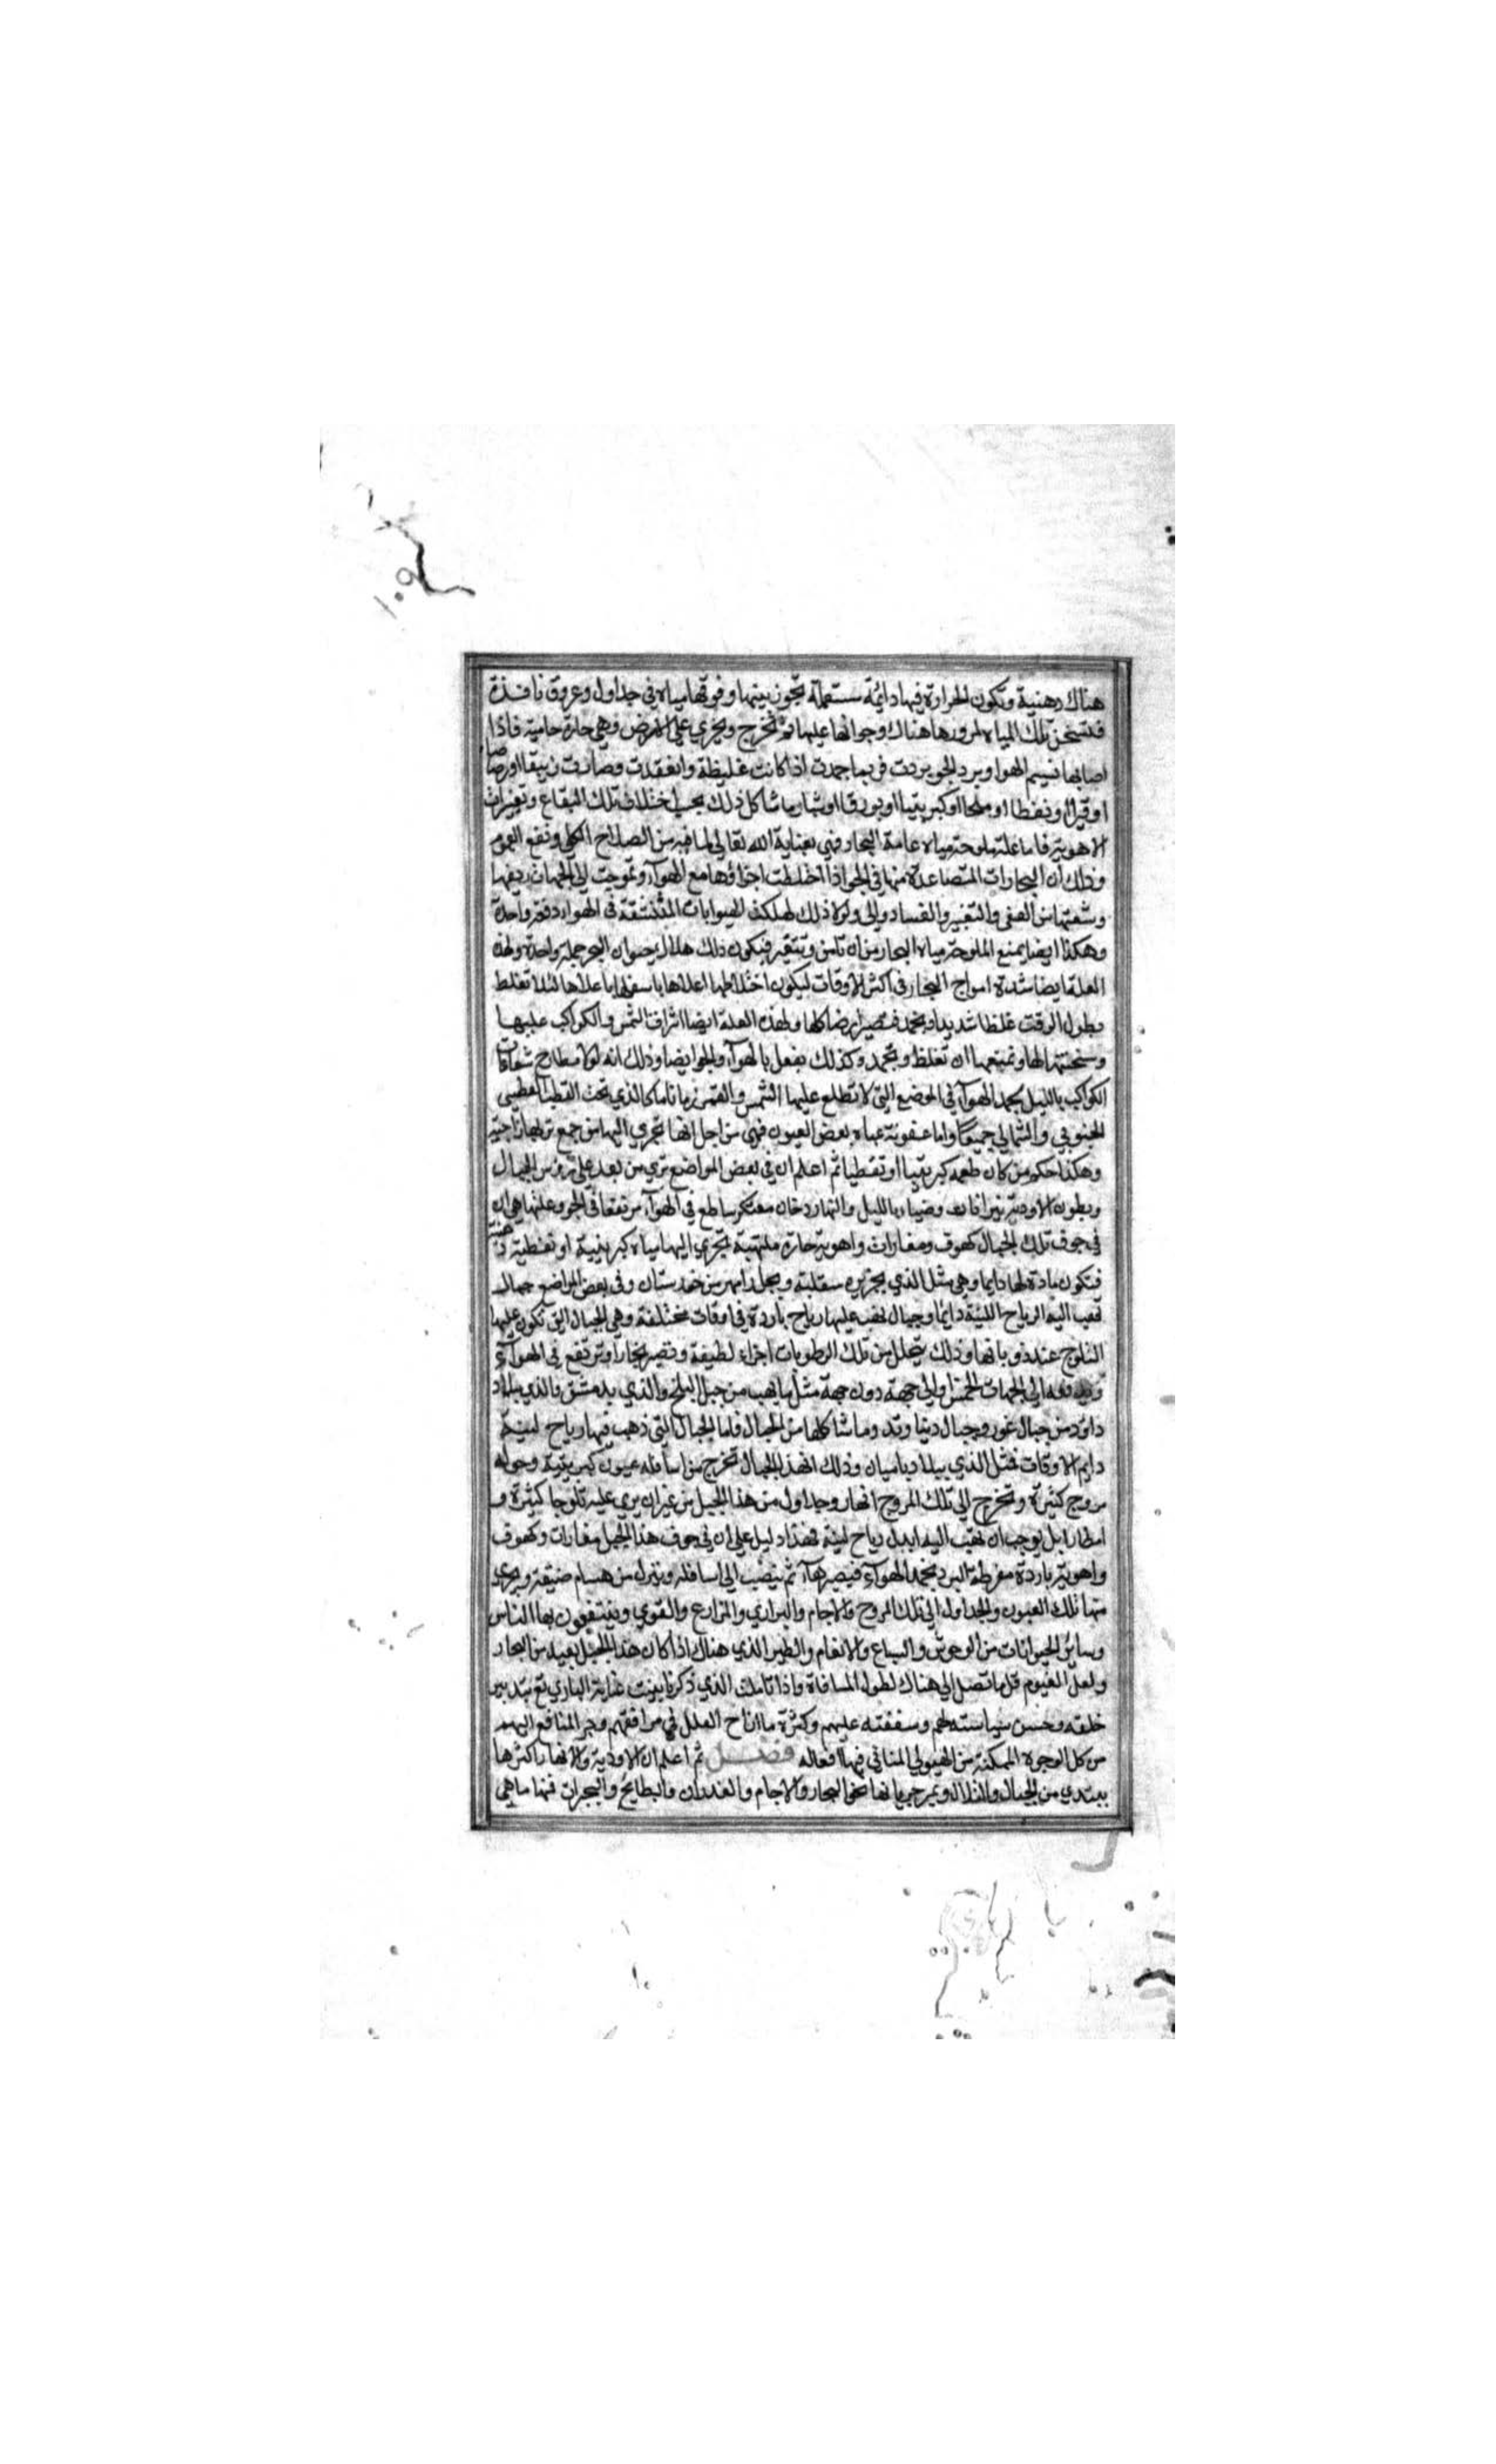 ١٠٩
هناك دهنية وتكون الحرارة فيها دائمة مستعملة تجوز بينها وفوقها مياه في جداول وعروق نافذة
فتسخن تلك المياه لمرورها هناك وجوازها عليها ثم تخرج وتجري على الارض وهي حارة حامية فاذا
اصابها نسيم الهوا وبرد الجو بردت فربما جمدت اذا كانت غليظة وانعقدت وصارت زيبقا او رصاصا
او قيرا او نفطا او ملحا او كبريتيا او بورقا او شبا وما شاكل ذلك بحسب اختلاف تلك البقاع وتغيرات
الاهوية فاما علة ملوحة مياه عامة البحار فهي بعناية الله تعالى لما فيه من الصلاح الكلي ونفع العموم
وذلك أن البخارات المتصاعدة منها في الجو اذا اختلطت اجزاؤها مع الهوآء وتموجت الى الجهات
وشفتها من العفن والتغيير والفساد ولولا ذلك لهلكت الحيوانات المتنشقة في الهوا دفعة واحدة
وهكذا ايضا يمنع الملوحة مياه البحار من ان تأسن وتتغير فيكون ذلك هلاك حيوان البحر جملة واحدة ولهذه
العلة ايضا شدة امواج البحار في اكثر الاوقات ليكون اختلاطها اعلاها باسفلها باعلاها لئلا تغلط
بطول الوقت غلظا شديدا وتجمد فتصير ارضا كلها ولهذه العلة ايضا اشراق الشمس والكواكب عليها
وسخنتها لها وتمنعها ان تغلظ وتجمد وكذلك يفعل بالهوآء والجو ايضا وذلك انه لولا مطارح شعاعات
الكواكب بالليل لجمد الهوآء في الموضع التي لا تطلع عليها الشمس والقمر زمانا ما كالذي تحت القطب القطبي
الجنوبي والشمالي جميعا واما عفونة مياه بعض العيون فهي من اجل انها تجري اليها من جمع تربها زاجية
وهكذا حكم من كان طعمه كبريتيا او نفطيا ثم اعلم ان في بعض المواضع ترى من بعد على رؤس الجبال
وبطون الاودية نيرانات وضياء بالليل والنهار دخان معتكر ساطع في الهوآء مرتفعا في الجو وعلتها هي ان
في جوف تلك الجبال كهوف ومغارات واهوية حارة ملتهبة تجري اليها مياه كبريتية او نفطية دهنية
فتكون مادة لها دايما وهي مثل الذي بجزيره سقلية وبجبل رامهرمز خوزستان وفي بعض المواضع جبال
تهب اليه الرياح اللينة دائما وجبال تهب عليها رياح باردة في اوقات مختلفة وهي الجبال التي تكون عليها
الثلوج عند ذوبانها وذلك يتحلل من تلك الرطوبات اجزاء لطيفة وتصير بخارا وترتفع في الهوآء
وتدفعه الى الجهات الخمس والى جهة دون جهة مثل ما يهب من جبل الثلج والذي بدمشق والذي ببلاد
داود من جبال غور وجبال دنباوند وما شاكلها من الجبال فاما الجبال التي تهب فيها رياح لينة
دايم الاوقات فمثل الذي ببلاد باميان وذلك ان هذا الجبال تخرج من اسافله عيون كبريتية وحوله
مروج كثيرة وتخرج الى تلك المروج انهار وجداول من هذا الجبل من غير ان يرى عليه ثلوجا كثيرة و
امطارا بل يوجب ان تهب اليه ابدا رياح لينة فهذا دليل على ان في جوف هذا الجبل مغارات وكهوف
واهوية باردة مفرطة البرد بجمد الهوآء فيصيرها ماء ثم ينصب الى اسافله وينزل من مسام ضيقة ويجري
منها تلك العيون والجداول الى تلك المروج والاجام والبراري والمزارع والقرى وينتفعون بها الناس
وسائر الحيوانات من الوحوش والسباع والانعام والطير الذي هناك اذا كان هذا الجبل بعيد من البحار
ولعل الغيوم قل ما تصل الى هناك لطول المسافاة واذا تاملت الذي ذكرنا بينت عناية الباري تع بتدبير
خلقه وحسن سياسته لهم وشفقته عليهم وكثرة ما ازاح العلل في مرافقهم وجر المنافع اليهم
من كل الوجوه الممكنة من الهيولى المنافي فيها افعاله فصل ثم اعلم ان الاودية والانهار اكثرها
يبتدي من الجبال والتلال ويمر جريانها نحو البحار والاجام والغدران والبطايح والبحيرات فمنها ما هي